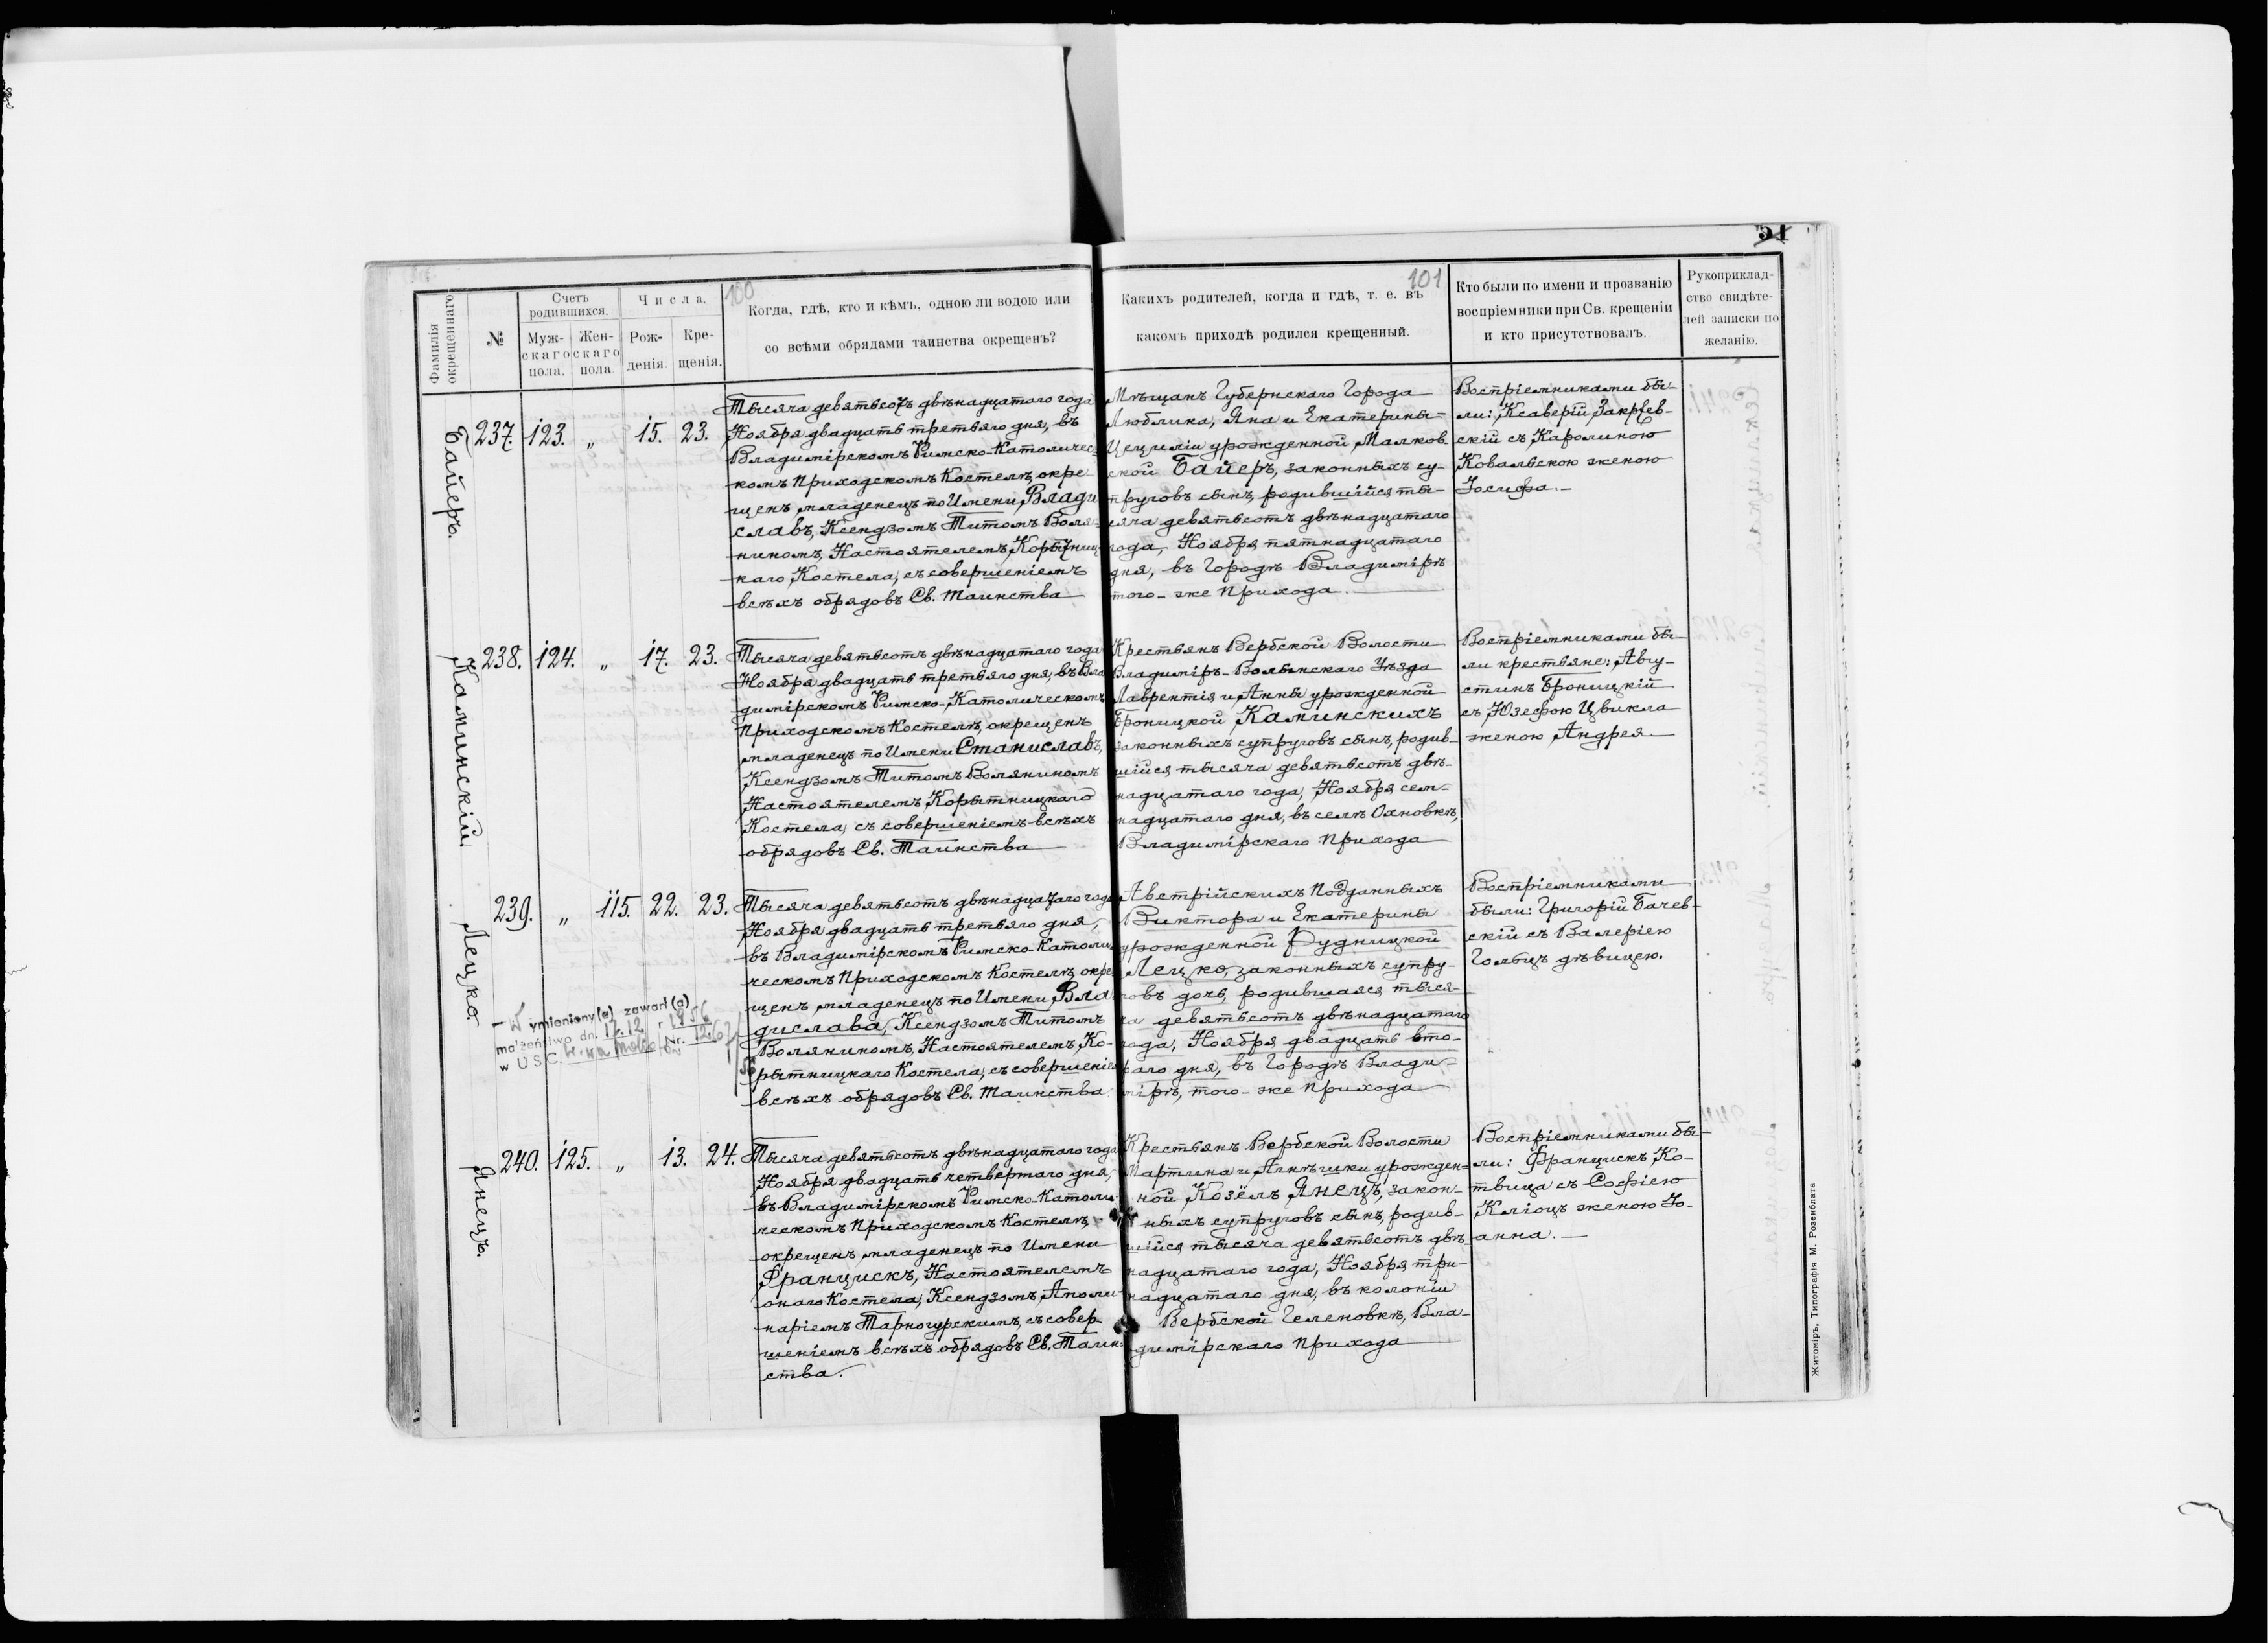 51
100
101
Фамилія окрещеннаго.
№
Счетъ родившихся.
Муж-скаго пола.
Жен-скаго пола.
Числа.
Рож-денія.
Кре-щенія.
Когда, гдѣ, кто и кѣмъ, одною ли водою или
со всѣми обрядами таинства окрещенъ?
Какихъ родителей, когда и гдѣ, т. е. въ
какомъ приходѣ родился крещенный.
Кто были по имени и прозванію
воспріемники при Св. крещеніи
и кто присутствовалъ.
Рукоприклад-
ство свидѣте-
лей записки по
желанію.
Байеръ.
237. 123. „ 15. 23.
Тысяча девятьсотъ двѣнадцатаго года
Ноября двадцать третьяго дня, въ
Владимірскомъ Римско-Католичес-
комъ Приходскомъ Костелѣ, окре
щенъ младенецъ по Имени Влади
славъ, Ксендзомъ Титомъ Воля-
ниномъ, Настоятелемъ Корытниц-
каго Костела, съ совершеніемъ
всѣхъ обрядовъ Св. Таинства
Мѣщанъ Губернскаго Города
Люблина, Яна и Екатерины-
Цециліи урожденной Малков-
ской Байеръ, законныхъ су-
пруговъ сынъ, родившійся ты-
сяча девятьсотъ двѣнадцатаго
года, Ноября пятнадцатаго
дня, въ Городѣ Владимірѣ
того-же Прихода.
Воспріемниками бы-
ли: Ксаверій Закржев-
скій съ Каролиною
Ковальскою женою
Іосифа.-
Каминскій.
238. 124. „ 17. 23.
Тысяча девятьсотъ двѣнадцатаго года
Ноября двадцать третьяго дня, въ Вла
димірскомъ Римско-Католическомъ
Приходскомъ Костелѣ, окрещенъ
младенецъ по Имени Станиславъ,
Ксендзомъ Титомъ Воляниномъ
Настоятелемъ Корытницкаго
Костела, съ совершеніемъ всѣхъ
обрядовъ Св. Таинства
Крестьянъ Вербской Волости
Владиміръ-Волынскаго Уѣзда
Лаврентія и Анны урожденной
Броницкой Каминскихъ
законныхъ супруговъ сынъ, родив-
шійся тысяча девятьсотъ двѣ-
надцатаго года, Ноября сем-
надцатаго дня, въ селѣ Охновкѣ,
Владимірскаго Прихода
Воспріемниками бы-
ли крестьяне: Авгу-
стинъ Броницкій
съ Юзефою Цвикла
женою Андрея
Лецко.
239. „ 115. 22. 23.
Тысяча девятьсотъ двѣнадцатаго года
Ноября двадцать третьяго дня,
въ Владимірскомъ Римско-Католи
ческомъ Приходскомъ Костелѣ, окре
щенъ младенецъ по Имени Вла-
дислава, Ксендзомъ Титомъ
Воляниномъ, Настоятелемъ Ко-
рытницкаго Костела, съ совершеніе
всѣхъ обрядовъ Св. Таинства
Австрійскихъ Подданныхъ
Виктора и Екатерины
урожденной Рудницкой
Лецко, законныхъ супру-
говъ дочь, родившаяся тыся-
ча девятьсотъ двѣнадцатаго
года, Ноября двадцать вто-
раго дня, въ Городѣ Влади-
мірѣ, того-же Прихода
Воспріемниками
были: Григорій Бачев-
скій съ Валеріею
Гольцъ дѣвицею.
W ymieniony(a) zawarł(a)
małżeństwo dn. 17.12. r. 1956
w U.S.C. Nr.
Янецъ.
240. 125. „ 13. 24.
Тысяча девятьсотъ двѣнадцатаго года
Ноября двадцать четвертаго дня,
въ Владимірскомъ Римско-Католи-
ческомъ Приходскомъ Костелѣ,
окрещенъ младенецъ по Имени
Францискъ, Настоятелемъ
онаго Костела, Ксендзомъ Аполи-
наріемъ Тарногурскимъ, съ совер-
шеніемъ всѣхъ обрядовъ Св. Таин-
ства.
Крестьянъ Вербской Волости
Мартина и Агнѣшки урожден-
ной Козёлъ Янецъ, закон-
ныхъ супруговъ сынъ, родив-
шійся тысяча девятьсотъ двѣ-
надцатаго года, Ноября три-
надцатаго дня, въ колоніи
Вербской Геленовкѣ, Вла-
димірскаго Прихода
Воспріемниками бы-
ли: Францискъ Ко-
твица съ Софіею
Кліоцъ женою Іо-
анна.-
Житоміръ, Типографія М. Розенблата